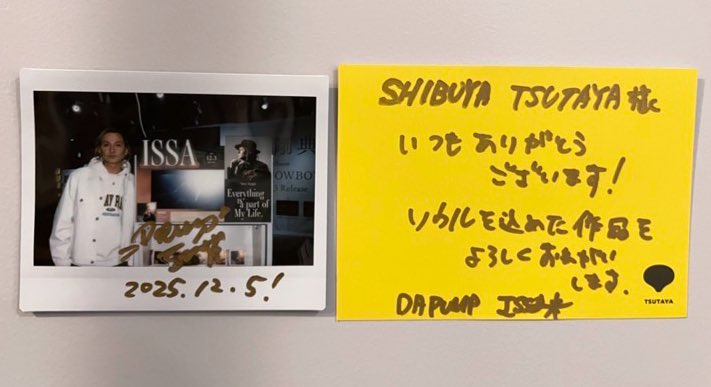 ISSA
12.3
COWBOY
Release
Everything
is a part of
My Life.
DA PUMP
2025.12.5!
SHIBUYA TSUTAYA様
いつもありがとう
ございます!
ソウルを込めた作品を
よろしくお願い
します。
DA PUMP ISSA
TSUTAYA